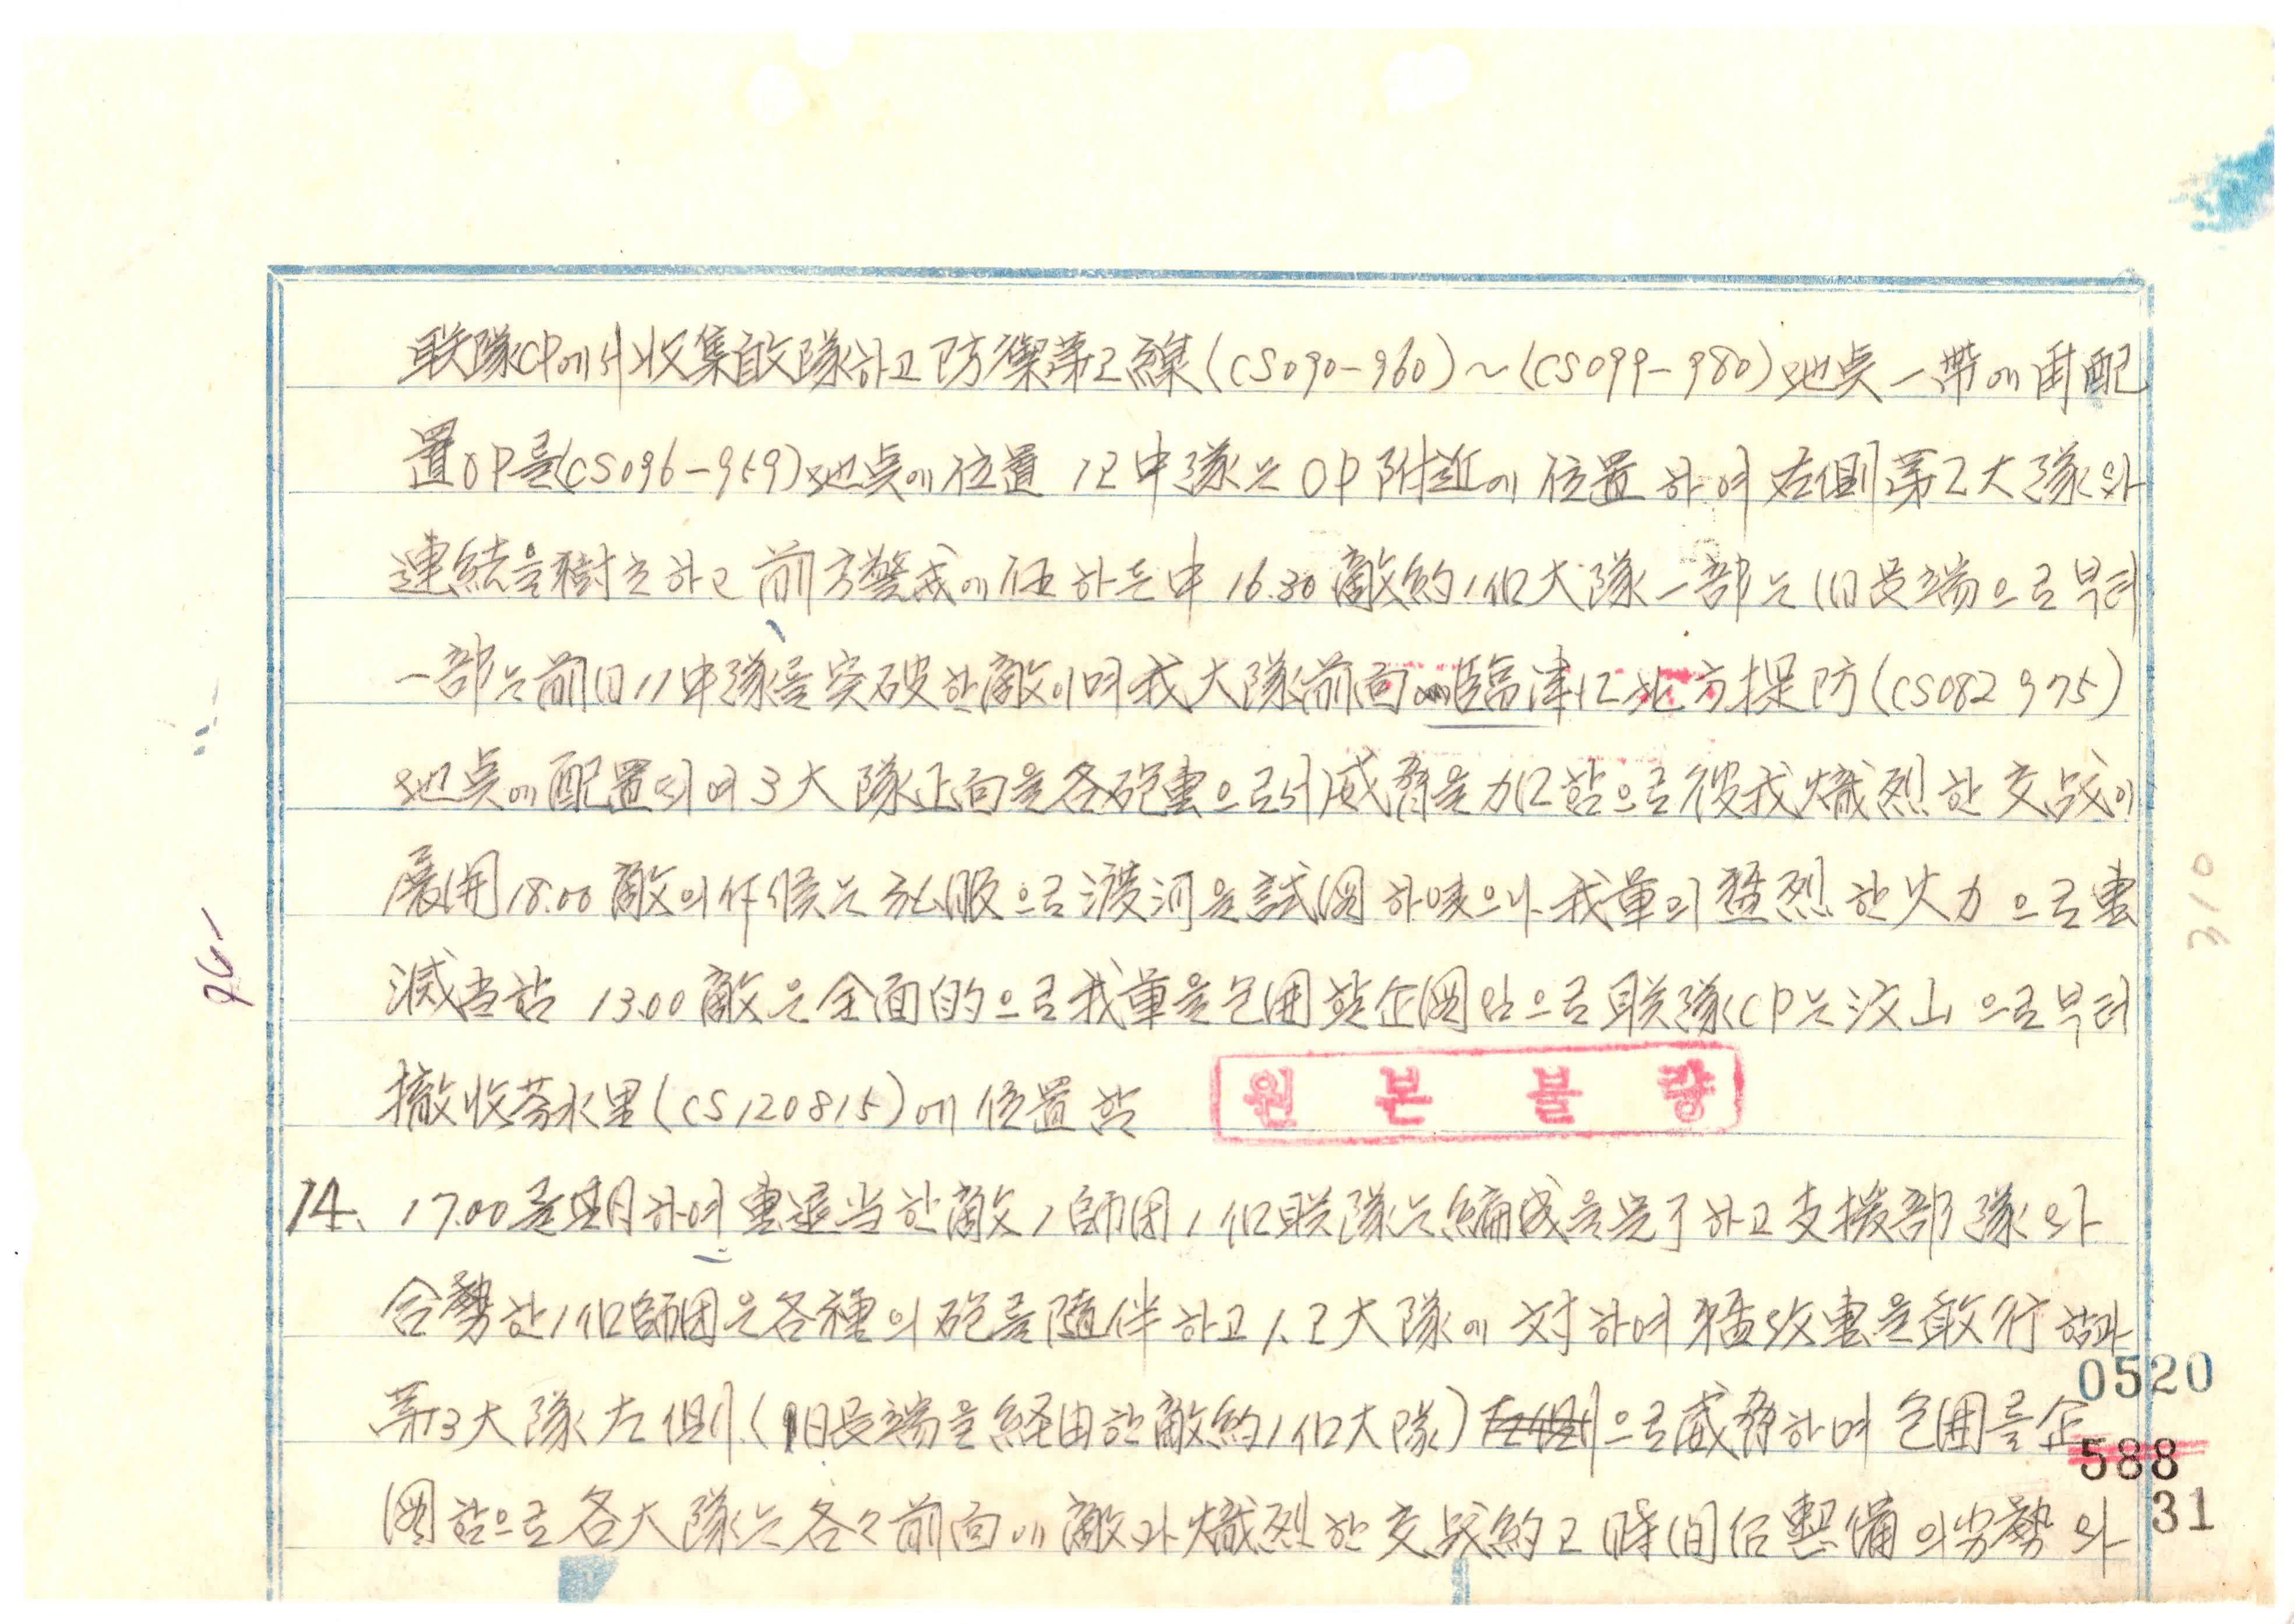 联隊CP에서 收集敢隊하고 防禦第2線(CS090-960)~(CS099-980)地点 一帶에 再配
置 OP를(CS096-959)地点에 位置 12中隊는 OP附近에 位置하여 右側 第2大隊와
連結을 樹立하고 前方警戒에 任하는中 16.30 敵約1個大隊 一部는 旧長端으로부터
一部는 前日 11中隊를 突破한 敵이며 我大隊前面 臨津江北方 提防(CS082 975)
地点에 配置되여 3大隊正面을 各砲击으로서 威脅을 加함으로 彼我 熾烈한 交战이
展開 18.00 敵의 斥候는 私服으로 渡河을 試図하였으나 我軍의 猛烈한 火力으로 击
滅当함 13.00 敵은 全面的으로 我軍을 包囲할 企図임으로 联隊CP는 汶山으로부터
撤收 芬水里(CS120815)에 位置함
원본불량
14. 17.00를 期하여 击退当한 敵 1師団 1個联隊는 編成을 完了하고 支援部隊와
合勢한 1個師団은 各種의 砲를 随伴하고 1.2大隊에 対하여 猛攻击을 敢行함과
第3大隊 左側(旧長端을 経由한 敵約1個大隊) 左側으로 威脅하며 包囲를 企
図함으로 各大隊는 各々前面에 敵과 熾烈한 交战 約2時間后 整備의 劣勢와
0520
588
31
310
96-